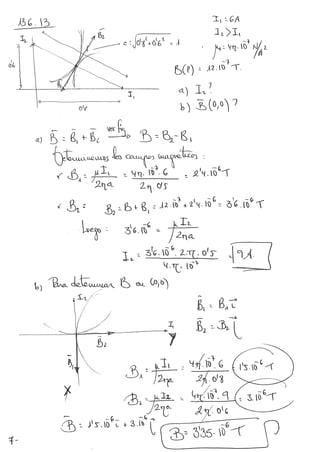 136.13
I₂
B⃗₂
c = √0'8² + 0'6² = 1
I₁ = 6A
I₂ > I₁
μ = 4π.10⁻⁷ N/A²
B(P) = 12.10⁻⁷ T.
0'6
I₁
0'8
a) I₂?
b) B⃗(0,0)?
a) B⃗ = B⃗₁ + B⃗₂ ver fig. B = B₂ - B₁
Determinemos los campos magnéticos:
B₁ = μI₁/2πa = 4π.10⁻⁷.6/2π.0'5 = 2'4.10⁻⁶ T
B₂: B₂ = B + B₁ = 1'2.10⁻⁶ + 2'4.10⁻⁶ = 3'6.10⁻⁶ T
Luego: 3'6.10⁻⁶ = μI₂/2πa
I₂ = 3'6.10⁻⁶.2.π.0'5/4.π.10⁻⁷ = 9A.
b) Para determinar B en (0,0)
I₂
I₁
B⃗₂
y
B⃗₁
x
B⃗₁ = B₁ i⃗
B⃗₂ = B₂ j⃗
B₁ = μI₁/2πa = 4π.10⁻⁷.6/2π.0'8 = 1'5.10⁻⁶ T
B₂ = μI₂/2πa = 4π.10⁻⁷.9/2π.0'6 = 3.10⁻⁶ T
B⃗ = 1'5.10⁻⁶ i + 3.10⁻⁶ j
B = 3'35.10⁻⁶ T
7-